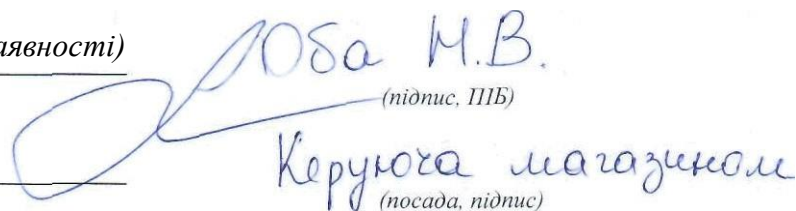 аявності) Юба Н.В.
(підпис, ПІБ)
Керуюча магазином
(посада, підпис)